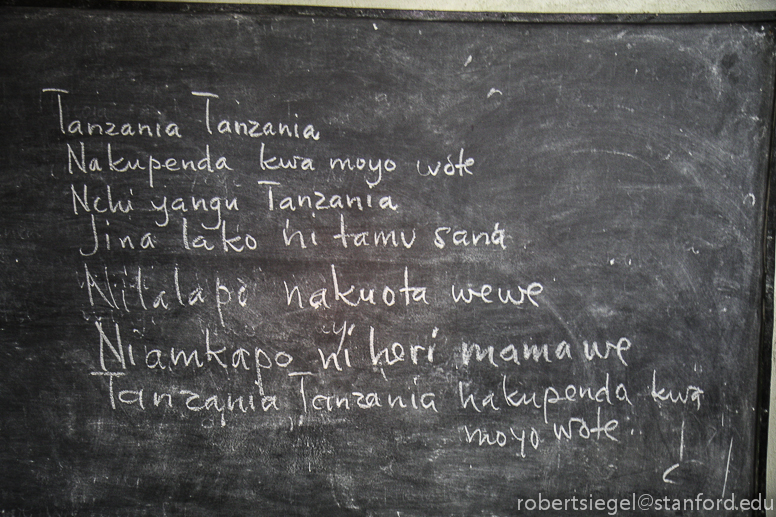 Tanzania Tanzania
Nakupenda kwa moyo wote
Nchi yangu Tanzania
Jina lako ni tamu sana
Nilalapo nakuota wewe
Niamkapo ni heri mama we
Tanzania Tanzania nakupenda kwa
moyo wote
robertsiegel@stanford.edu